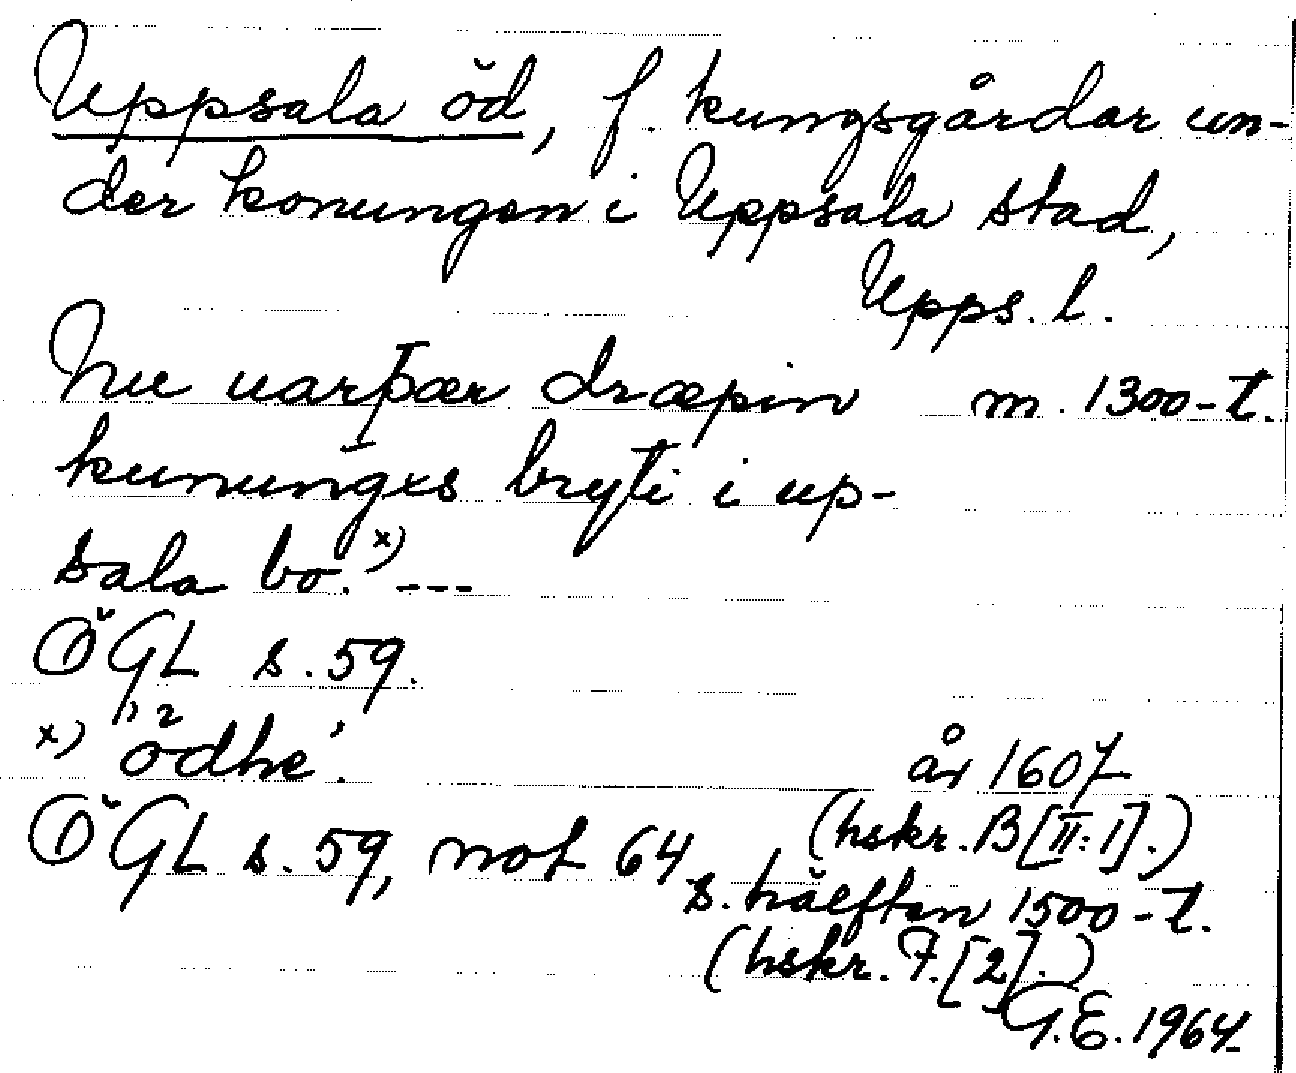 Uppsala öd, f. kungsgårdar un-
der konungen i Uppsala stad,
Upps. l.
Nu uarþær dræpin m. 1300-t.
kunungxs bryti i up-
sala bo. x) ---
ÖGL s. 59.
x) "ödhe". år 1607
(hskr. B [II: I].)
ÖGL s. 59, not 64
s. hälften 1500-t.
(hskr. F. [2].)
G.E. 1964